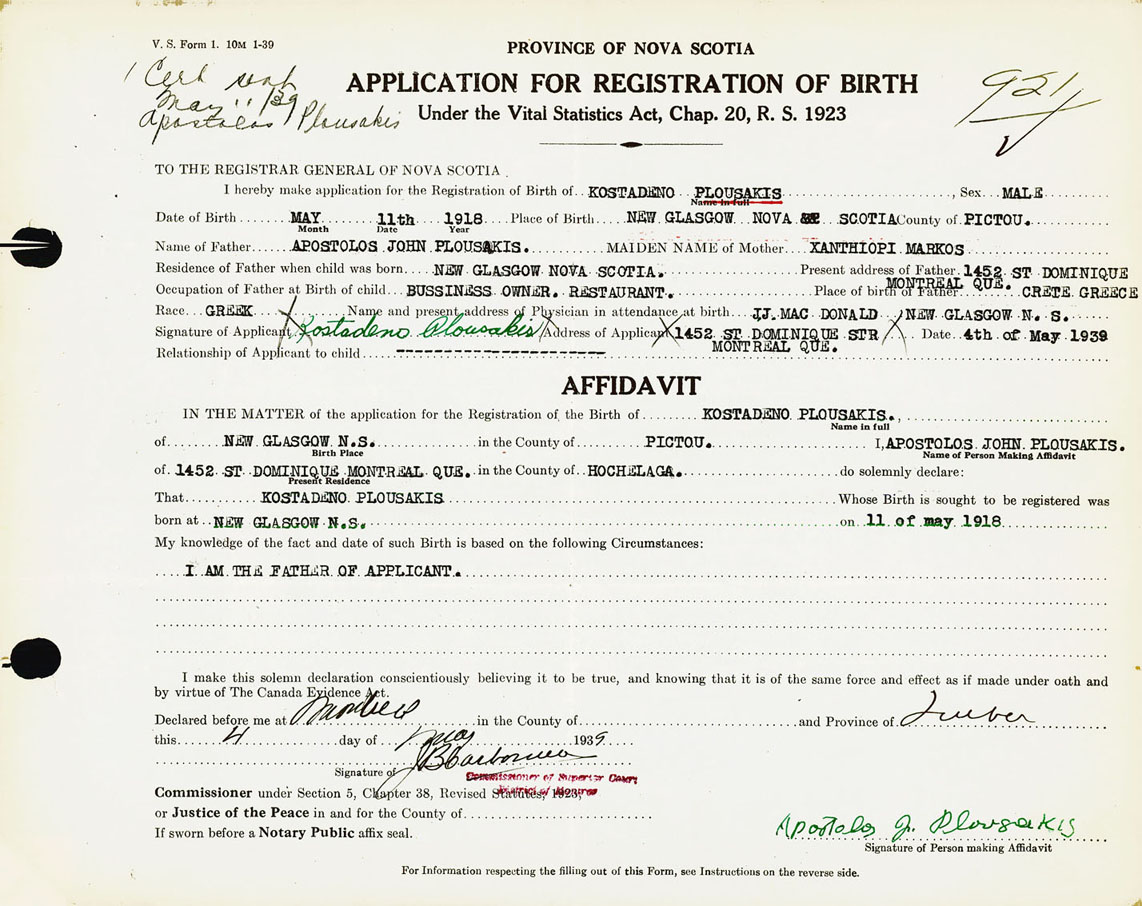 V. S. Form 1. 10M 1-39
1 Cert sent
May 11/39
Apostolos Plousakis
921
PROVINCE OF NOVA SCOTIA
APPLICATION FOR REGISTRATION OF BIRTH
Under the Vital Statistics Act, Chap. 20, R. S. 1923
TO THE REGISTRAR GENERAL OF NOVA SCOTIA
I hereby make application for the Registration of Birth of KOSTADENO PLOUSAKIS, Sex MALE
Name in full
Date of Birth MAY 11th 1918 Place of Birth NEW GLASGOW NOVA SCOTIA County of PICTOU.
Month Date Year
Name of Father APOSTOLOS JOHN PLOUSAKIS. MAIDEN NAME of Mother XANTHIOPI MARKOS
Residence of Father when child was born NEW GLASGOW NOVA SCOTIA. Present address of Father 1452 ST DOMINIQUE
MONTREAL QUE.
Occupation of Father at Birth of child BUSSINESS OWNER. RESTAURANT. Place of birth of Father CRETE GREECE
Race GREEK Name and present address of Physician in attendance at birth J.J. MAC DONALD NEW GLASGOW N. S.
Signature of Applicant Kostadeno Plousakis Address of Applicant 1452 ST DOMINIQUE STR Date 4th of May 1939
MONTREAL QUE.
Relationship of Applicant to child
AFFIDAVIT
IN THE MATTER of the application for the Registration of the Birth of KOSTADENO PLOUSAKIS.,
Name in full
of NEW GLASGOW N.S. in the County of PICTOU. I, APOSTOLOS JOHN PLOUSAKIS.
Birth Place Name of Person Making Affidavit
of 1452 ST DOMINIQUE MONTREAL QUE. in the County of HOCHELAGA. do solemnly declare:
Present Residence
That KOSTADENO PLOUSAKIS Whose Birth is sought to be registered was
born at NEW GLASGOW N.S. on 11 of may 1918
My knowledge of the fact and date of such Birth is based on the following Circumstances:
I AM THE FATHER OF APPLICANT.
I make this solemn declaration conscientiously believing it to be true, and knowing that it is of the same force and effect as if made under oath and
by virtue of The Canada Evidence Act.
Declared before me at Montreal in the County of and Province of Quebec
this 4 day of May 1939
Signature of
Commissioner of Superior Court
Commissioner under Section 5, Chapter 38, Revised Statutes, 1923,
District of Montreal
or Justice of the Peace in and for the County of
If sworn before a Notary Public affix seal.
Apostolos J. Plousakis
Signature of Person making Affidavit
For Information respecting the filling out of this Form, see Instructions on the reverse side.